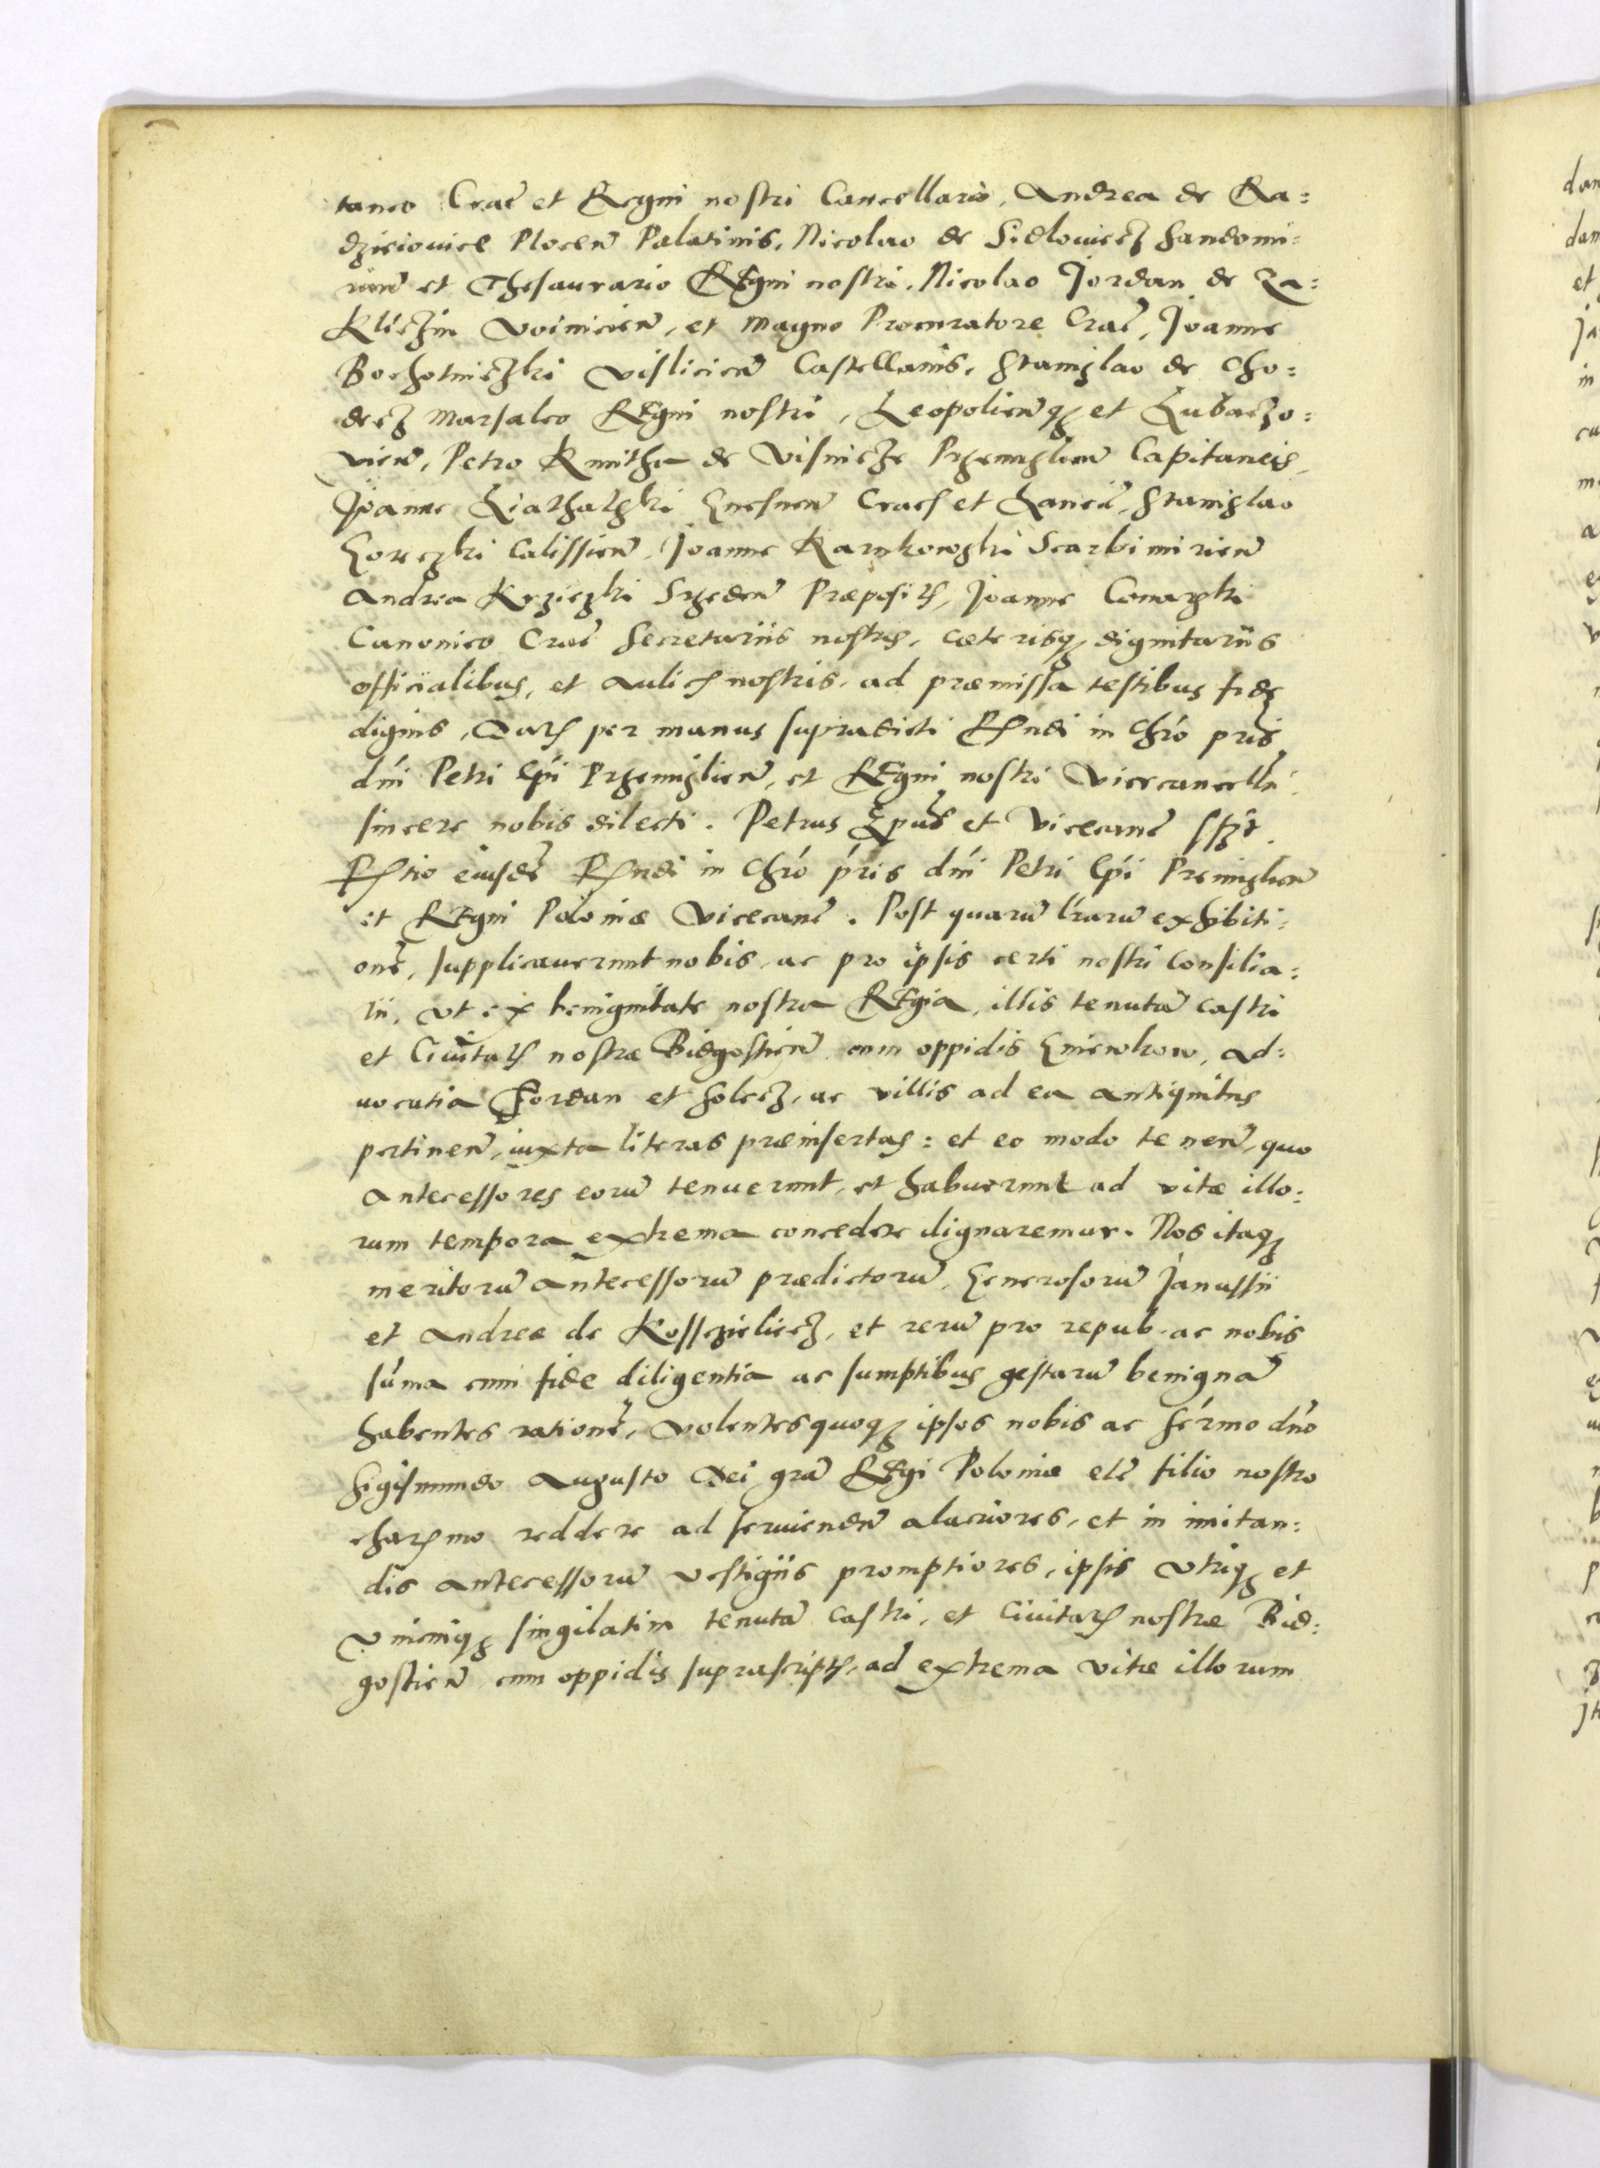 taneo Crac̃ et Regni nostri Cancellario, Andrea de Ra=
dzieiovice Plocen̄ Palatinis, Nicolao de Sidlowiecz Sandomi=
rien̄ et Thesaurario Regni nostri, Nicolao Jordan de Za=
kliczin Voinicien̄, et Magno Procuratore Crac̃, Joanne
Bochotniczki Vislicien̄ Castellanis, Stanislao de Cho=
decz Marsalco Regni nostri, Leopolien̄q; et Lubaczo=
vien̄, Petro Kmitha de Visnicze Przemislien̄ Capitaneis,
Joanne Lathalski Gnesnen̄ Crac̃ et Lancic̃, Stanislao
Goreczki Calissien̄, Joanne Karnkowski Scarbimirien̄
Andrea Krziczki Srzeden̄ Præposit̃, Joanne Conarski
Canonico Crac̃ Secretariis nostris, cæterisq; dignitariis
officialibus, et aulic̃ nostris, ad præmissa testibus fide
dignis, Dat̃ per manus supradicti R̃ndi in Chr̃o pris̃
dñi Petri Ep̃i Przemislien̄, et Regni nostri Vicecancell̃ii
sincere nobis dilecti. Petrus Ep̃us et Vicecanc̃ sspt̃.
R̃tio eiusdē R̃ndi in Chr̃o p̃ris dñi Petri Ep̃i Premislien̄
et Regni Poloniæ Vicecanc̃. Post quarū l̃rarū exhibiti=
onē, supplicaverunt nobis, ac pro ipsis certi nostri Consilia=
rii, ut ex benignitate nostra Regia, illis tenutā castri
et Civitat̃ nostræ Bidgostien̄ cum oppidis Gniewkow, ad=
vocatia Fordan et Solecz, ac villis ad ea antiquitus
pertinen̄, iuxta literas præinsertas: et eo modo tenen̄, quo
antecessores eorū tenuerunt, et habuerunt ad vitæ illo=
rum tempora extrema concedere dignaremur. Nos itaq;
meritorū antecessorū prædictorū, Generosorū Janussii
et Andreæ de Kosczieliecz, et rerū pro repub. ac nobis
sũma cum fide diligentia ac sumptibus gestarū benignā
habentes rationē, volentes quoq; ipsos nobis ac Serm̃o dño
Sigismundo Augusto Dei gr̃a Regi Poloniæ elc̃ filio nostro
char̃mo reddere ad serviendū alacriores, et in imitan=
dis antecessorū vestigiis promptiores, ipsis utriq; et
unicuiq; singilatim tenutā castri, et Civitat̃ nostræ Bid=
gostien̄ cum oppidis suprascript̃, ad extrema vitæ illorum